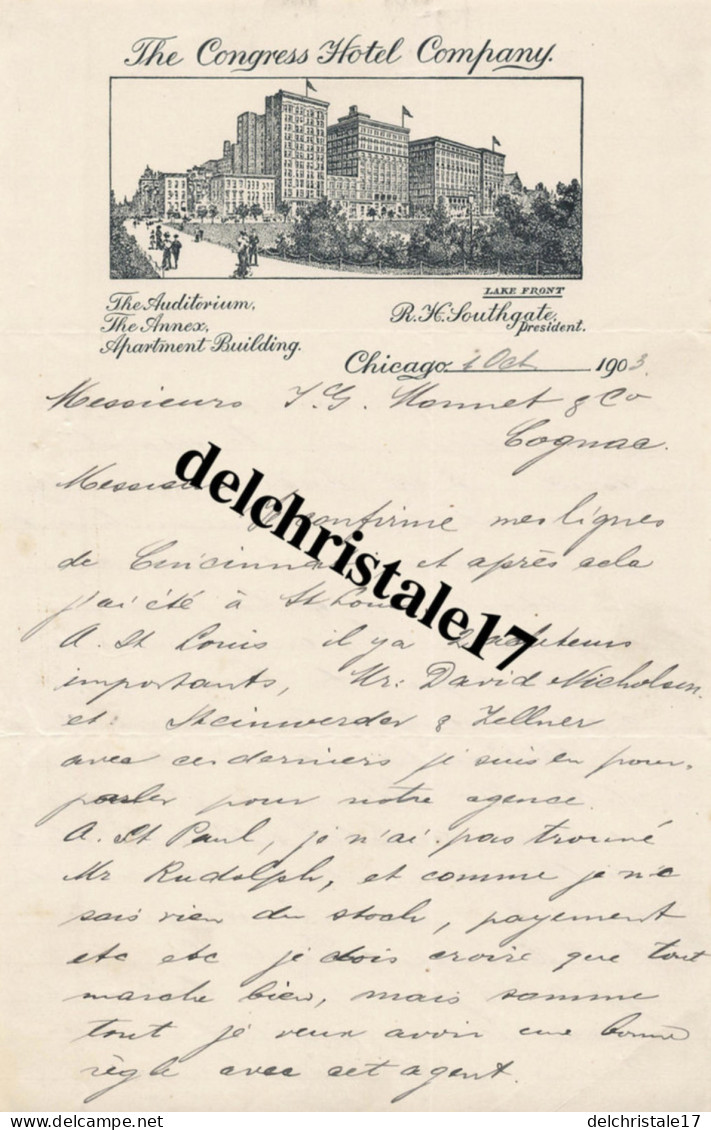 The Congress Hotel Company.
LAKE FRONT
The Auditorium,
The Annex,
Apartment Building.
R. H. Southgate,
President.
Chicago, 1 Oct 1903
Messieurs J. G. Monnet & Co
Cognac.
confirme mes lignes
de et après cela
j'ai été à St Louis
A St Louis il y a acheteurs
importants, Mr. David Nicholson
et Steinwender & Zellner
avec ces derniers je suis en pour-
parler pour notre agence.
A St Paul, je n'ai pas trouvé
Mr Rudolph, et comme je ne
sais rien du stock, payement
etc etc je dois croire que tout
marche bien, mais somme
tout je veux avoir une bonne
règle avec cet agent.
delchristale17
delcampe.net
delchristale17